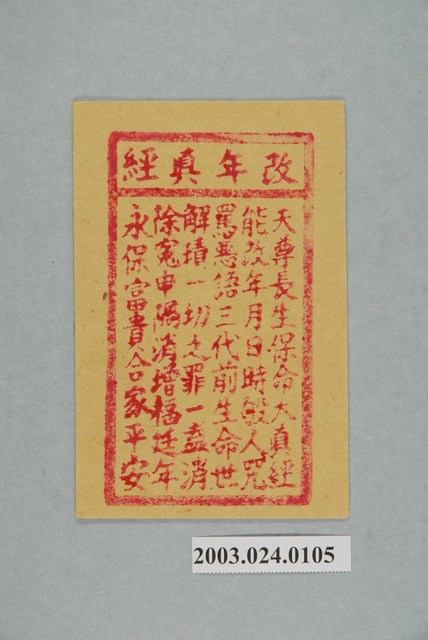 改年真經
天尊長生保命大真經
能改年月日時殺人咒
罵惡語三代前生命世
解積一切之罪一盡消
除冤申隔消增福廷年
永保富貴合家平安
2003.024.0105